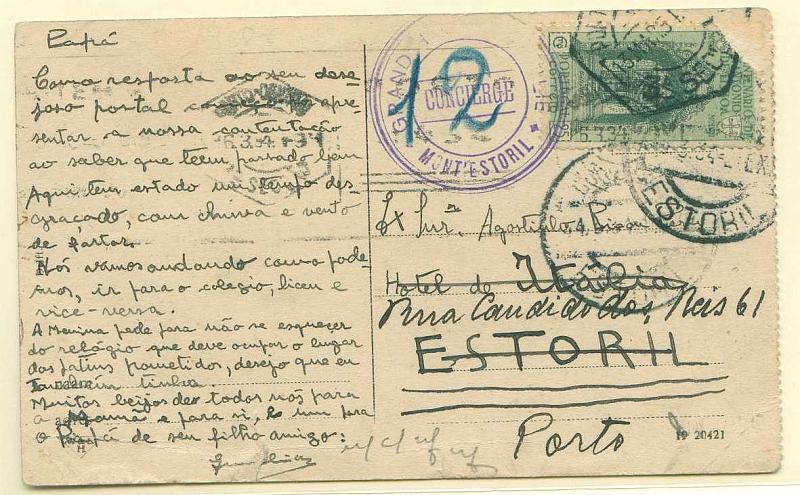 Papá
Como resposta ao seu dese-
joso postal começo por apre-
sentar a nossa contentação
ao saber que teem passado bem
Aqui tem estado um tempo des-
graçado, com chuva e vento
de fartar.
Nós vamos andando como pode-
mos, ir para o colegio, liceu e
vice-versa.
A Menina pede para não se esquecer
do relógio que deve ocupar o lugar
dos patins prometidos, desejo que eu
tambem tinha.
Muitos beijos de todos nós para
a Mamãe e para si, e um para
o Papá de seu filho amigo:
12
GRANDE
CONCIERGE
MONT'ESTORIL
ESTORIL
Ex Snr. Agostinho
Hotel de Itália
Rua Candido dos Reis 61
ESTORIL
Porto
19 20421